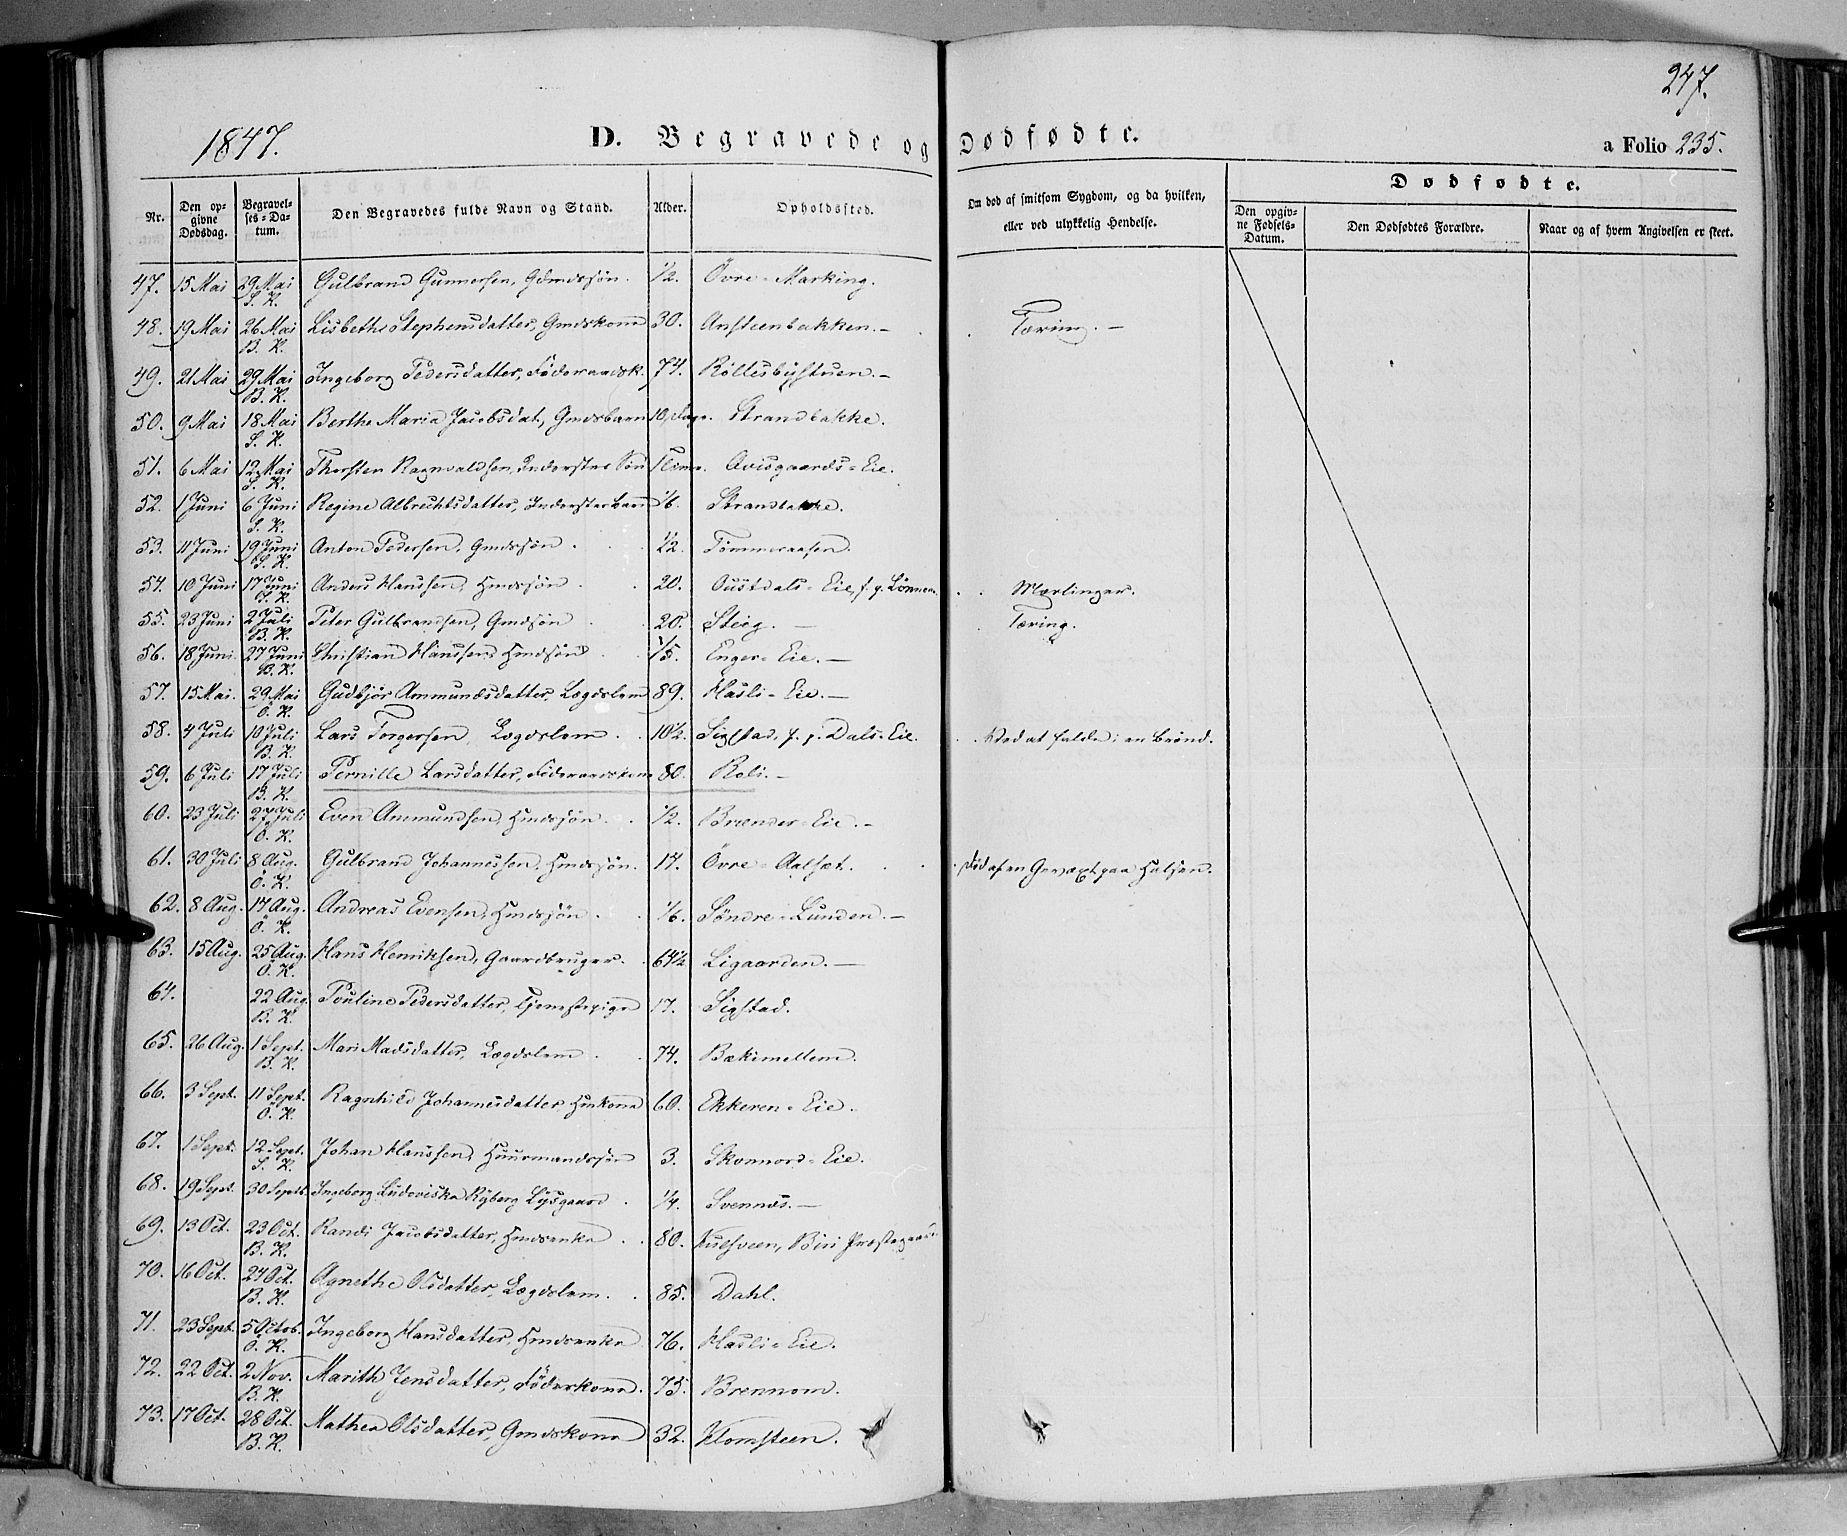 247.
1847.
D. Begravede og Dødfødte.
a Folio 235.
Nr.
Den opgivne Dødsdag.
Begravelses-Datum.
Den Begravedes fulde Navn og Stand.
Alder.
Opholdssted.
Om død af smitsom Sygdom, og da hvilken, eller ved ulykkelig Hendelse.
Dødfødte.
Den opgivne Fødsels-Datum.
Den Dødfødtes Forældre.
Naar og af hvem Angivelsen er skeet.
47. 15 Mai 29 Mai Gulbrand Gunnersen, Gdmdssøn. 1/2. Övre-Marking.
S. K.
48. 19 Mai 26 Mai Lisbeth Stephensdatter, Gmdskone 30. Ansteenbakken.- Tæring. -
B. K.
49. 21 Mai 29 Mai Ingeborg Pedersdatter, Föderaadsk. 74. Röllesbystuen.-
B. K.
50. 9 Mai 18 Mai Berthe Maria Jacobsdat, Gmdsbarn 10, Dage. Strandbakke.
S. K.
51. 6 Mai 12 Mai Thorsten Ragnvaldsen, Inderstes Søn 7 Timer. Avisgaards-Eie.
S. K.
52. 1 Juni 6 Juni Regine Albrechtsdatter, Inderstesbarn 1/6. Strandbakke.
S. K.
53. 11 Juni 19 Juni Anton Pedersen, Gmdssøn. 1/2. Tömmeraasen.
S. K.
54. 10 Juni 17 Juni Anders Hanssen, Hmdssøn. 20. Oustdals-Eie, f. g. Lönnem. Mæslinger.
S. K.
55. 23 Juni 2 Juli Peter Gulbrandsen, Gmdssøn 20. Steeg. - Tæring.
B. K.
56. 18 Juni 27 Juni Christian Hanssen, Hmdssøn. 1/5. Enger-Eie. -
B. K.
57. 15 Mai. 29 Mai Gudbjör Ammundsdatter, Lægdslem 89. Hasli-Eie. -
O. K.
58. 4 Juli 10 Juli Lars Torgersen, Lægdslem. 10 1/2. Sigstad, f. g. Dals-Eie. Ved at falde i en Brønd.
B. K.
59. 6 Juli 17 Juli Pernille Larsdatter, Föderaadskone 80. Roli. -
B. K.
60. 23 Juli 27 Juli Even Ammundsen, Hmdssøn. 1/2. Brænder-Eie. -
O. K.
61. 30 Juli 8 Aug. Gulbrand Johannessen, Hmdssøn. 17. Övre-Aalset. Död af en Gevæxt paa Halsen.
O. K.
62. 8 Aug. 17 Aug. Andreas Evensen, Hmdssøn. 1/6. Söndre-Lunden. -
O. K.
63. 15 Aug. 25 Aug. Hans Henriksen, Gaardbruger. 64 1/2 Ligaarden. -
O. K.
64. 22 Aug. Pouline Pedersdatter, Tjenestepige 17. Sigstad.
B. K.
65. 26 Aug. 1 Sept. Mari Madsdatter, Lægdslem. 74. Bækimellem.
B. K.
66. 3 Sept. 11 Sept. Ragnhild Johannesdatter Huskone 60. Ekkeren-Eie.
O. K.
67. 1 Sept. 12 Sept. Johan Hanssen, Huusmandssøn 3. Skonnord-Eie.
S. K.
68. 19 Sept. 30 Septb. Ingeborg Ludoviska Ryberg Lysgaard. 1/4. Svennæs. -
69. 13 Oct. 23 Oct. Randi Jacobsdatter, Hmdsenke. 80. Kulsveen, Biri Præstegaard
B. K.
70. 16 Oct. 24 Oct. Agnethe Olsdatter, Lægdslem. 85. Dahl.
B. K.
71. 23 Sept. 5 Octob. Ingeborg Hansdatter, Hmdsenke 76. Hasli-Eie.
O. K.
72. 22 Oct. 2 Nov. Marith Jensdatter, Föderkone. 75. Brennom.
B. K.
73. 17 Oct. 28 Oct. Mathea Olsdatter, Gmdskone 32. Klomsteen.
B. K.